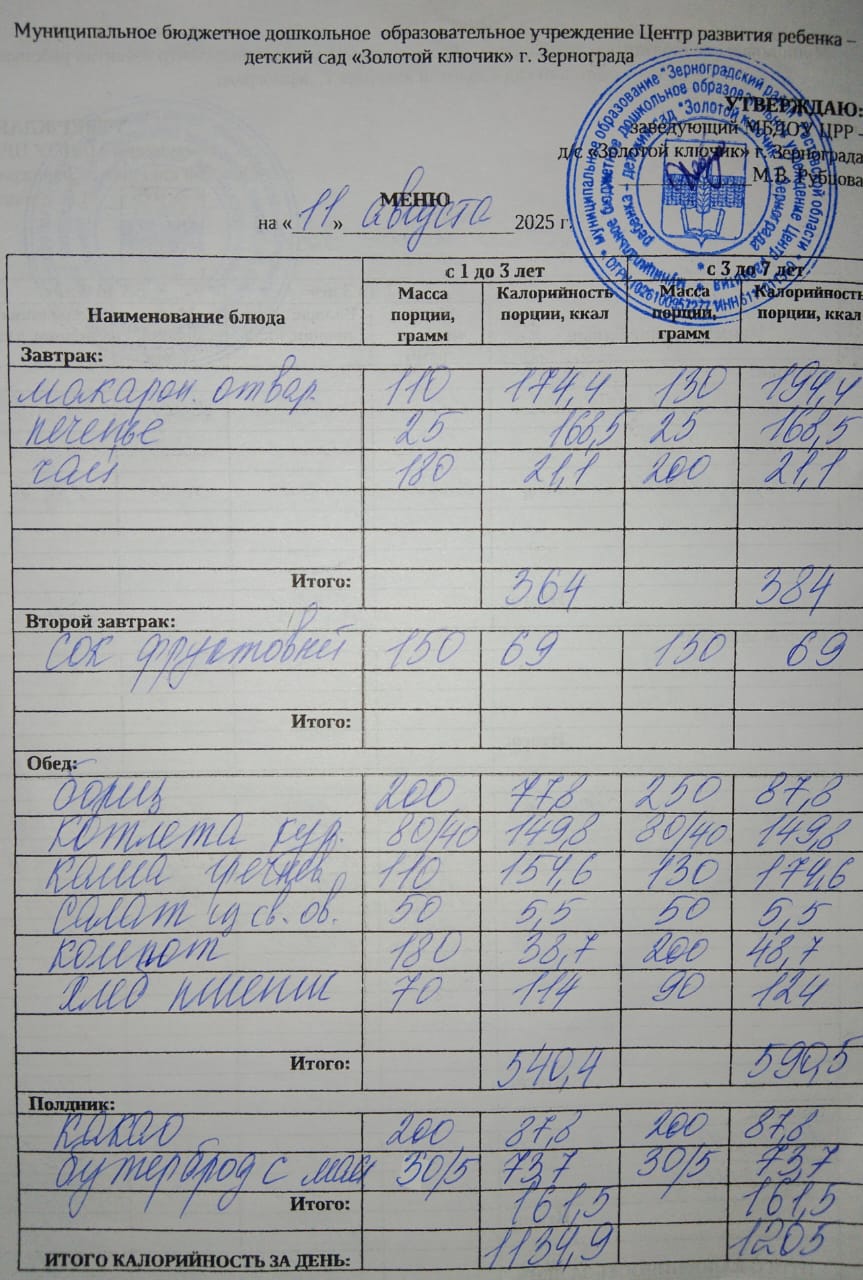 Муниципальное бюджетное дошкольное образовательное учреждение Центр развития ребенка –
детский сад «Золотой ключик» г. Зернограда
УТВЕРЖДАЮ:
заведующий МБДОУ ЦРР -
д/с «Золотой ключик» г. Зернограда
М.В. Рубцова
МЕНЮ
на « 11 » августа 2025 г.
с 1 до 3 лет с 3 до 7 лет
Наименование блюда Масса порции, грамм Калорийность порции, ккал Масса порции, грамм Калорийность порции, ккал
Завтрак:
макарон. отвар. 110 174,4 130 194,4
печенье 25 168,5 25 168,5
чай 180 21,1 200 21,1
Итого: 364 384
Второй завтрак:
сок фруктовый 150 69 150 69
Итого:
Обед:
борщ 200 77,8 250 87,8
котлета кур. 80/40 149,8 80/40 149,8
каша гречнев. 110 154,6 130 174,6
салат из св. ов. 50 5,5 50 5,5
компот 180 38,7 200 48,7
хлеб пшенич 70 114 90 124
Итого: 540,4 590,5
Полдник:
какао 200 87,8 200 87,8
бутерброд с мас 30/5 73,7 30/5 73,7
Итого: 161,5 161,5
ИТОГО КАЛОРИЙНОСТЬ ЗА ДЕНЬ: 1134,9 1205